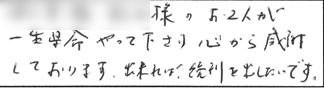 様のお2人が
一生懸命やって下さり心から感謝
しております。出来れば、給料を出したいです。